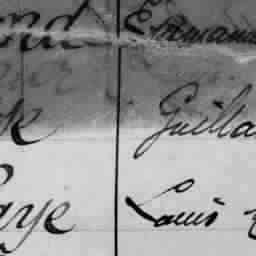 ond Emmanu
k Guilla
aye Louis